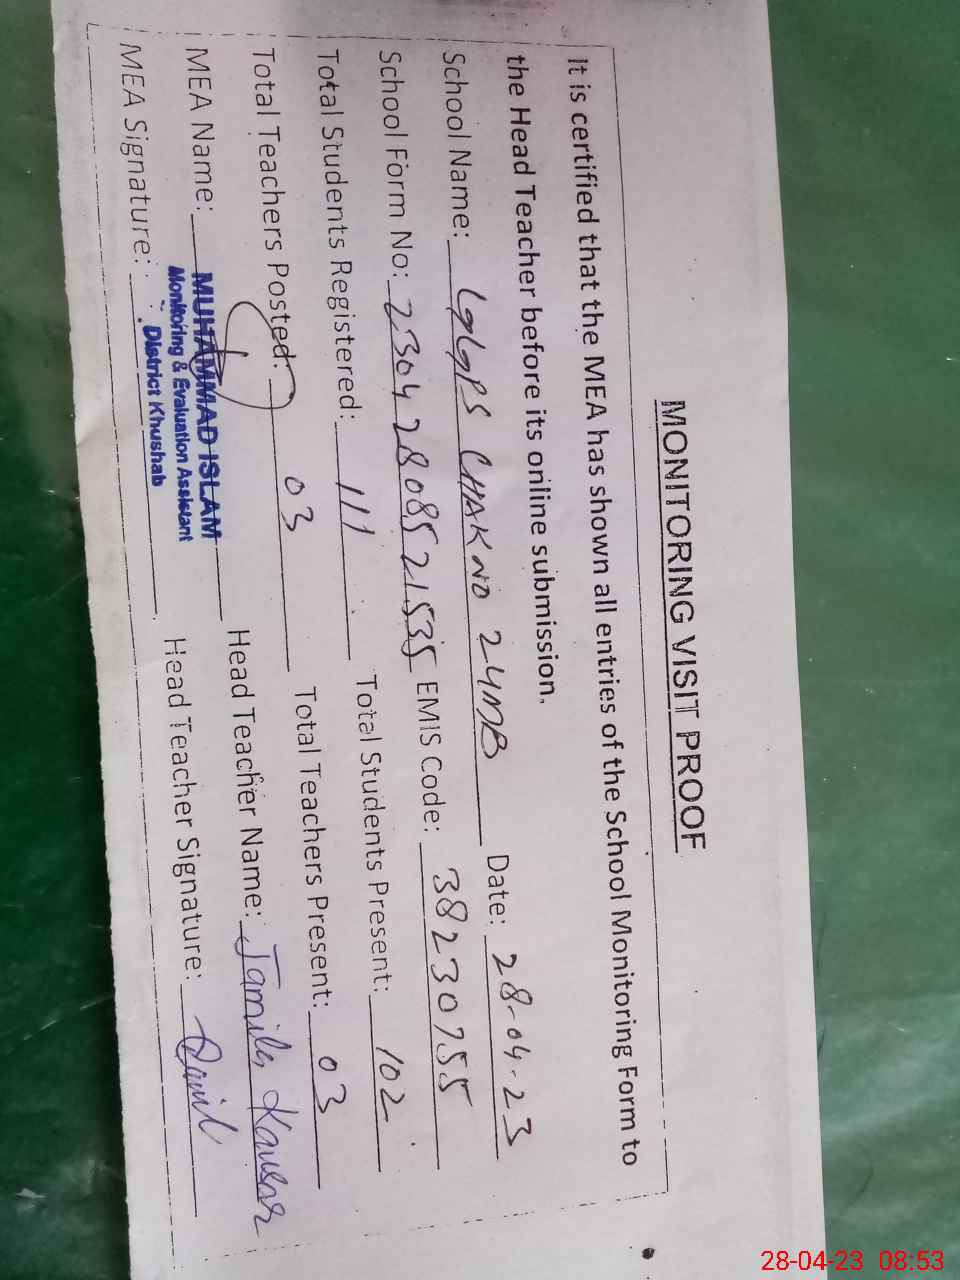 MONITORING VISIT PROOF
It is certified that the MEA has shown all entries of the School Monitoring Form to
the Head Teacher before its online submission.
School Name: GGPS CHAK NO 24MB Date: 28-04-23
School Form No: 23042808521535 EMIS Code: 38230755
Total Students Registered: 111 Total Students Present: 102
Total Teachers Posted: 03 Total Teachers Present: 03
MEA Name: MUHAMMAD ISLAM Head Teacher Name: Jamila Kausar
Monitoring & Evaluation Assistant
MEA Signature: District Khushab Head Teacher Signature:
28-04-23 08:53